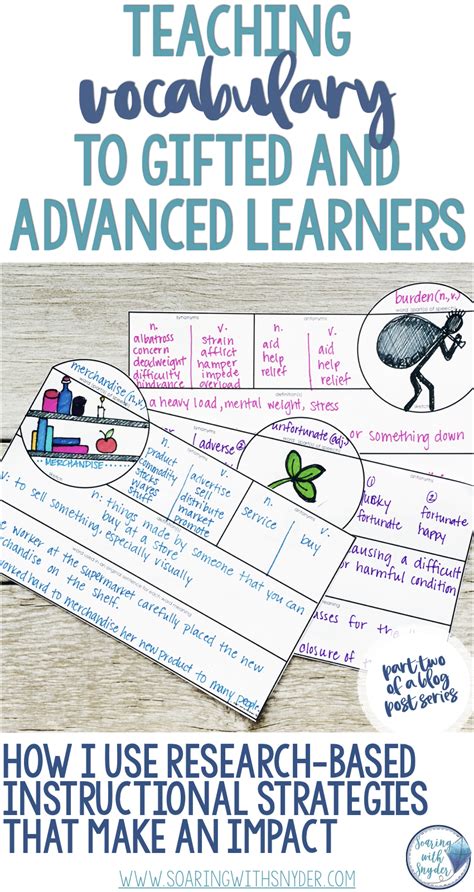 TEACHING
vocabulary
TO GIFTED AND
ADVANCED LEARNERS
burden(n,v)
word (parts of speech)
synonyms
antonyms
n.
v.
n.
v.
albatross
concern
deadweight
difficulty
hindrance
strain
afflict
hamper
impede
overload
aid
help
relief
aid
help
relief
definition(s)
a heavy load, mental weight, stress
or something down
merchandise(n,v)
MERCHANDISE
synonyms
antonyms
n.
v.
n.
v.
product
commodity
stocks
wares
stuff
advertise
sell
distribute
market
promote
service
buy
n: things made by someone that you can
buy at a store
v: to sell something, especially visually
word used in an original sentence for each word meaning
The worker at the supermarket carefully placed the new
merchandise on the shelf.
worked hard to merchandise her new product to many people.
or
adverse
②
unfortunate(adj)
①
②
lucky
fortunate
fortunate
happy
causing a difficult
or harmful condition
meaning
passes for the
closure of the
part two
of a blog
post series
HOW I USE RESEARCH-BASED
INSTRUCTIONAL STRATEGIES
THAT MAKE AN IMPACT
WWW.SOARINGWITHSNYDER.COM
Soaring
with
Snyder